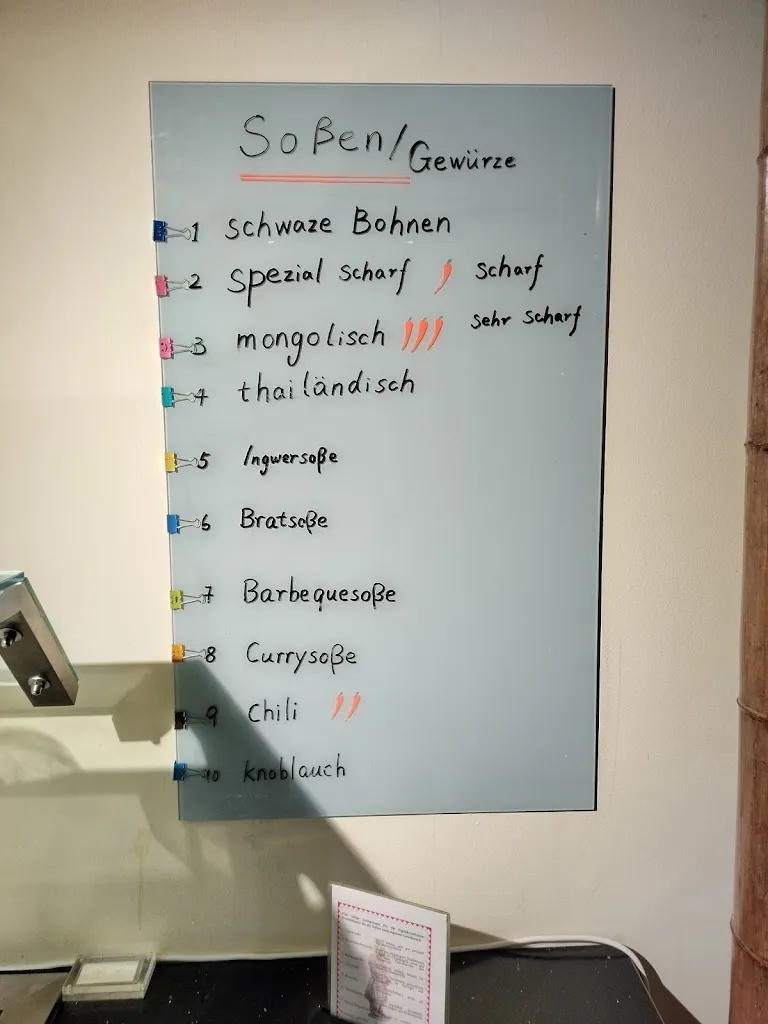 Soßen/Gewürze
1 schwaze Bohnen
2 spezial scharf scharf
3 mongolisch sehr scharf
4 thailändisch
5 Ingwersoße
6 Bratsoße
7 Barbequesoße
8 Currysoße
9 Chili
10 knoblauch